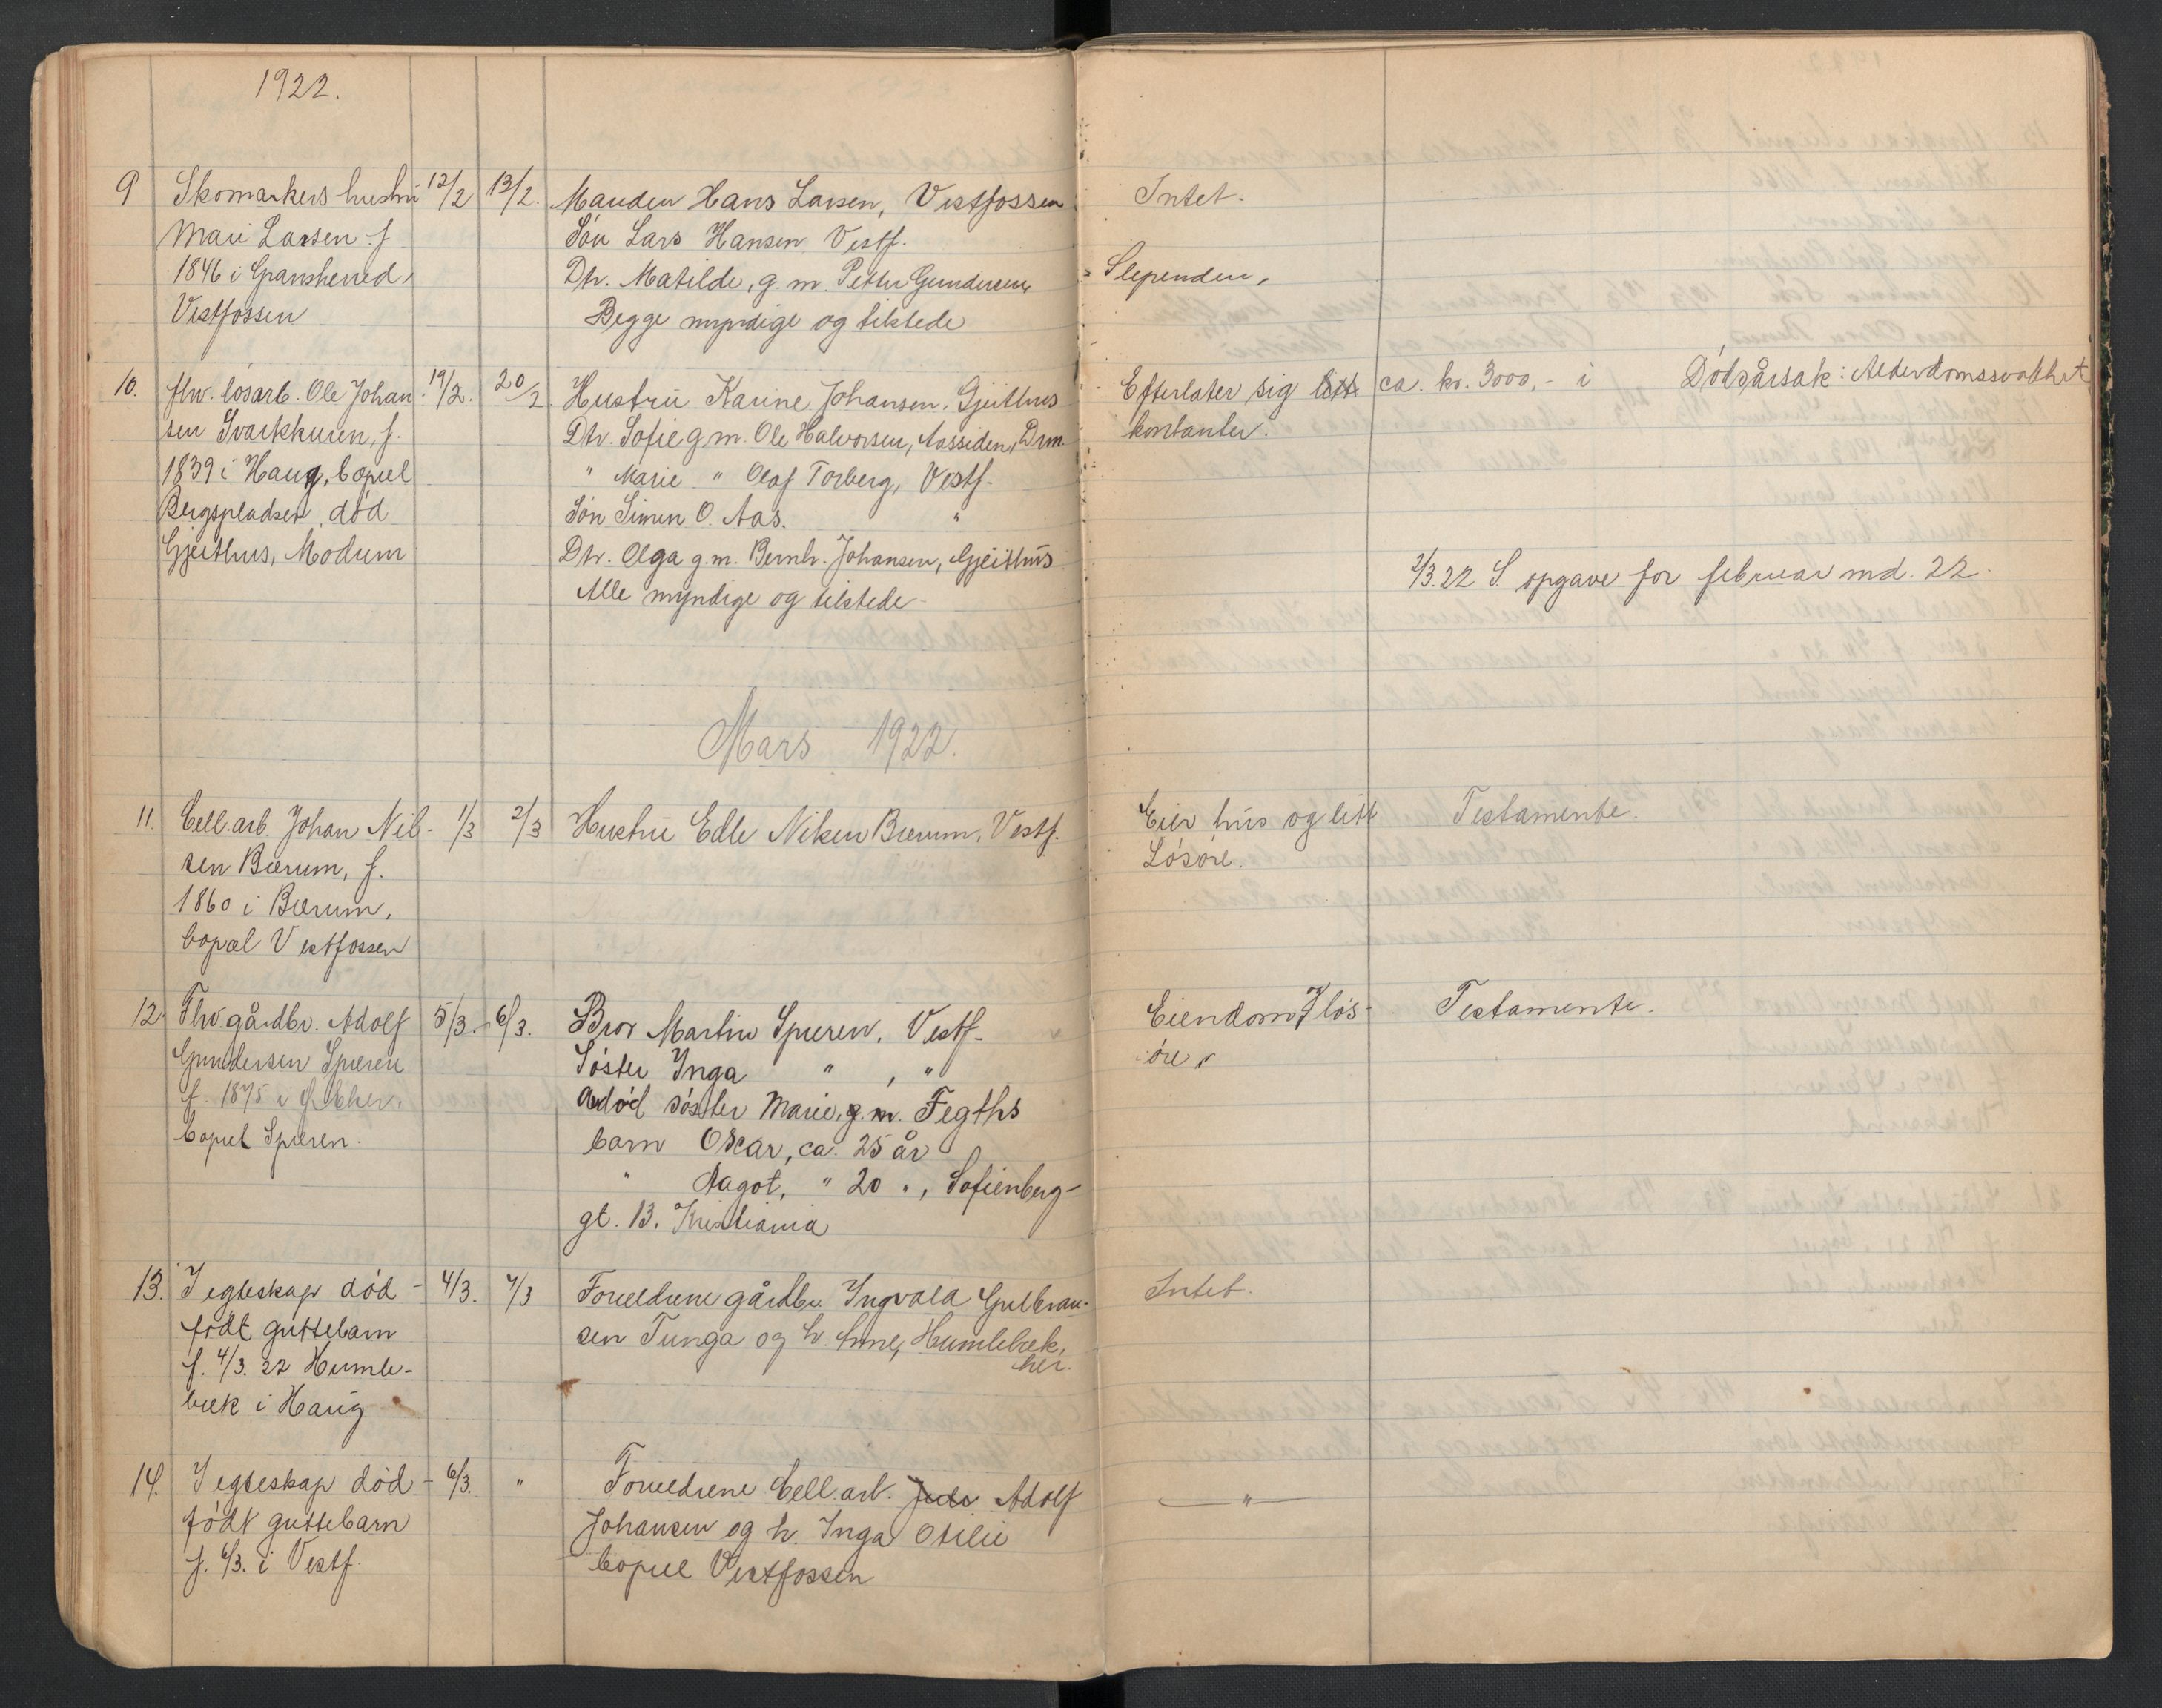 1922.
9 Skomarkers hustru 12/2 13/2. Manden Hans Larsen, Vestfossen Intet.
Mari Larsen f. Søn Lars Hansen Vestf.
1846 i Gransherred, Dtr. Matilde, g. m. Petter Gundersen, Slependen,
Vestfossen Begge myndige og tilstede
10. flw. løsarb. Ole Johan- 19/2. 20/2 Hustru Karine Johansen. Gjeithus Efterlater sig litt ca. kr. 3000,- i Dødsårsak: Alderdomssvakhet
sen Svarkkuren, f. Dtr. Sofie g. m. Ole Halvorsen, Aassiden, Drm. kontanter.
1839 i Haug, bopæl " Marie " Olaf Torberg, Vestf.
Bergspladsen, død Søn Simen O. Aas. "
Gjeithus, Modum Dtr. Olga g. m. Bernh. Johansen, Gjeithus
Alle myndige og tilstede
2/3.22 S opgave for februar md. 22.
Mars 1922.
11. Cell.arb. Johan Nil- 1/3 2/3 Hustru Edle Nilsen Bærum, Vestf. Eier hus og litt Testamente.
sen Bærum, f. Løsøre.
1860 i Bærum,
bopæl Vestfossen
12. Flw. gårdbr. Adolf 5/3. 6/3. Bror Martin Spæren, Vestf. Eiendom og løs- Testamente.
Gundersen Spæren Søster Inga " , " øre
f. 1875 i Ø. Eker. Avdød søster Marie, g. m. Fegths
bopæl Spæren. barn Oscar, ca. 25 år
" Aagot, " 20 ", Sofienberg-
gt. 13. Kristiania
13. I egteskap død- 4/3. 7/3 Forældrene gårdbr. Ingvald Gulbran- Intet.
født guttebarn sen Tunga og h. Anne, Humlebæk,
f. 4/3. 22 Humle- her.
bæk i Haug
14. I egteskap død- 6/3. " Forældrene Cell.arb. Adolf — " —
født guttebarn Johansen og h. Inga Otilie
f. 6/3. i Vestf. bopæl Vestfossen